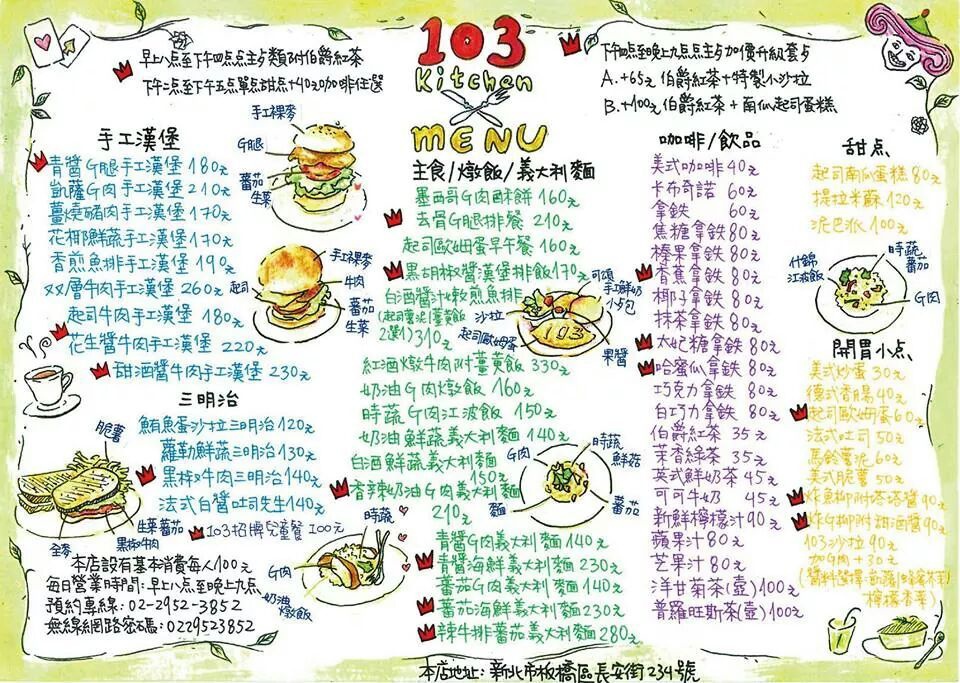 早上八点至下午四点主占類附伯爵紅茶
下午二点至下午五点單点甜点+40元咖啡任選
103
Kitchen
MENU
下午四点至晚上九点点主占加價升級套占
A. +65元 伯爵紅茶+特製小沙拉
B. +100元 伯爵紅茶+南瓜起司蛋糕
手工漢堡
青醬G腿手工漢堡 180元
凱薩G肉手工漢堡 210元
薑燒豬肉手工漢堡 170元
花椰鮮蔬手工漢堡 170元
香煎魚排手工漢堡 190元
双層牛肉手工漢堡 260元
起司牛肉手工漢堡 180元
花生醬牛肉手工漢堡 220元
甜酒醬牛肉手工漢堡 230元
手工裸麥
G腿
蕃茄
生菜
手工裸麥
牛肉
起司
蕃茄
生菜
三明治
鮪魚蛋沙拉三明治 120元
蘿勒鮮蔬三明治 130元
黑椒牛肉三明治 140元
法式白醬吐司先生 140元
103招牌兒童餐 100元
脆薯
生菜蕃茄
黑椒牛肉
全麥
本店設有基本消費每人100元
每日營業時間:早上八点至晚上九点
預約專線:02-2952-3852
無線網路密碼:0229523852
時蔬
G肉
奶油
燉飯
主食/燉飯/義大利麵
墨西哥G肉酥餅 160元
去骨G腿排餐 210元
起司歐姆蛋早午餐 160元
黑胡椒醬漢堡排飯 170元
白酒醬汁嫩煎魚排
2選1) 310元
紅酒燉牛肉附薑黃飯 330元
奶油G肉燉飯 160元
時蔬G肉江波飯 150元
奶油鮮蔬義大利麵 140元
白酒鮮蔬義大利麵
150元
香辣奶油G肉義大利麵
210元
青醬G肉義大利麵 140元
青醬海鮮義大利麵 230元
蕃茄G肉義大利麵 140元
蕃茄海鮮義大利麵 230元
辣牛排蕃茄義大利麵 280元
可頌
手工鮮奶
小占包
沙拉
起司歐姆蛋
103
果醬
時蔬
G肉
鮮菇
麵
蕃茄
咖啡/飲品
美式咖啡 40元
卡布奇諾 60元
拿鉄 60元
焦糖拿鉄 80元
榛果拿鉄 80元
香蕉拿鉄 80元
椰子拿鉄 80元
抹茶拿鉄 80元
太妃糖拿鉄 80元
哈蜜瓜拿鉄 80元
巧克力拿鉄 80元
白巧力拿鉄 80元
伯爵紅茶 35元
茉香綠茶 35元
英式鮮奶茶 45元
可可牛奶 45元
新鮮檸檬汁 90元
蘋果汁 80元
芒果汁 80元
洋甘菊茶(壺) 100元
普羅旺斯茶(壺) 100元
甜点
起司南瓜蛋糕 80元
提拉米蘇 120元
泥巴派 100元
時蔬
蕃茄
什錦
江波飯
G肉
開胃小点
美式炒蛋 30元
德式香腸 40元
起司歐姆蛋 60元
法式吐司 50元
馬鈴薯泥 60元
美式脆薯 50元
炸魚柳附塔塔醬 90元
炸G柳附甜酒醬 90元
103沙拉 90元
加G肉+30元
檸檬香草)
本店地址:新北市板橋區長安街234號